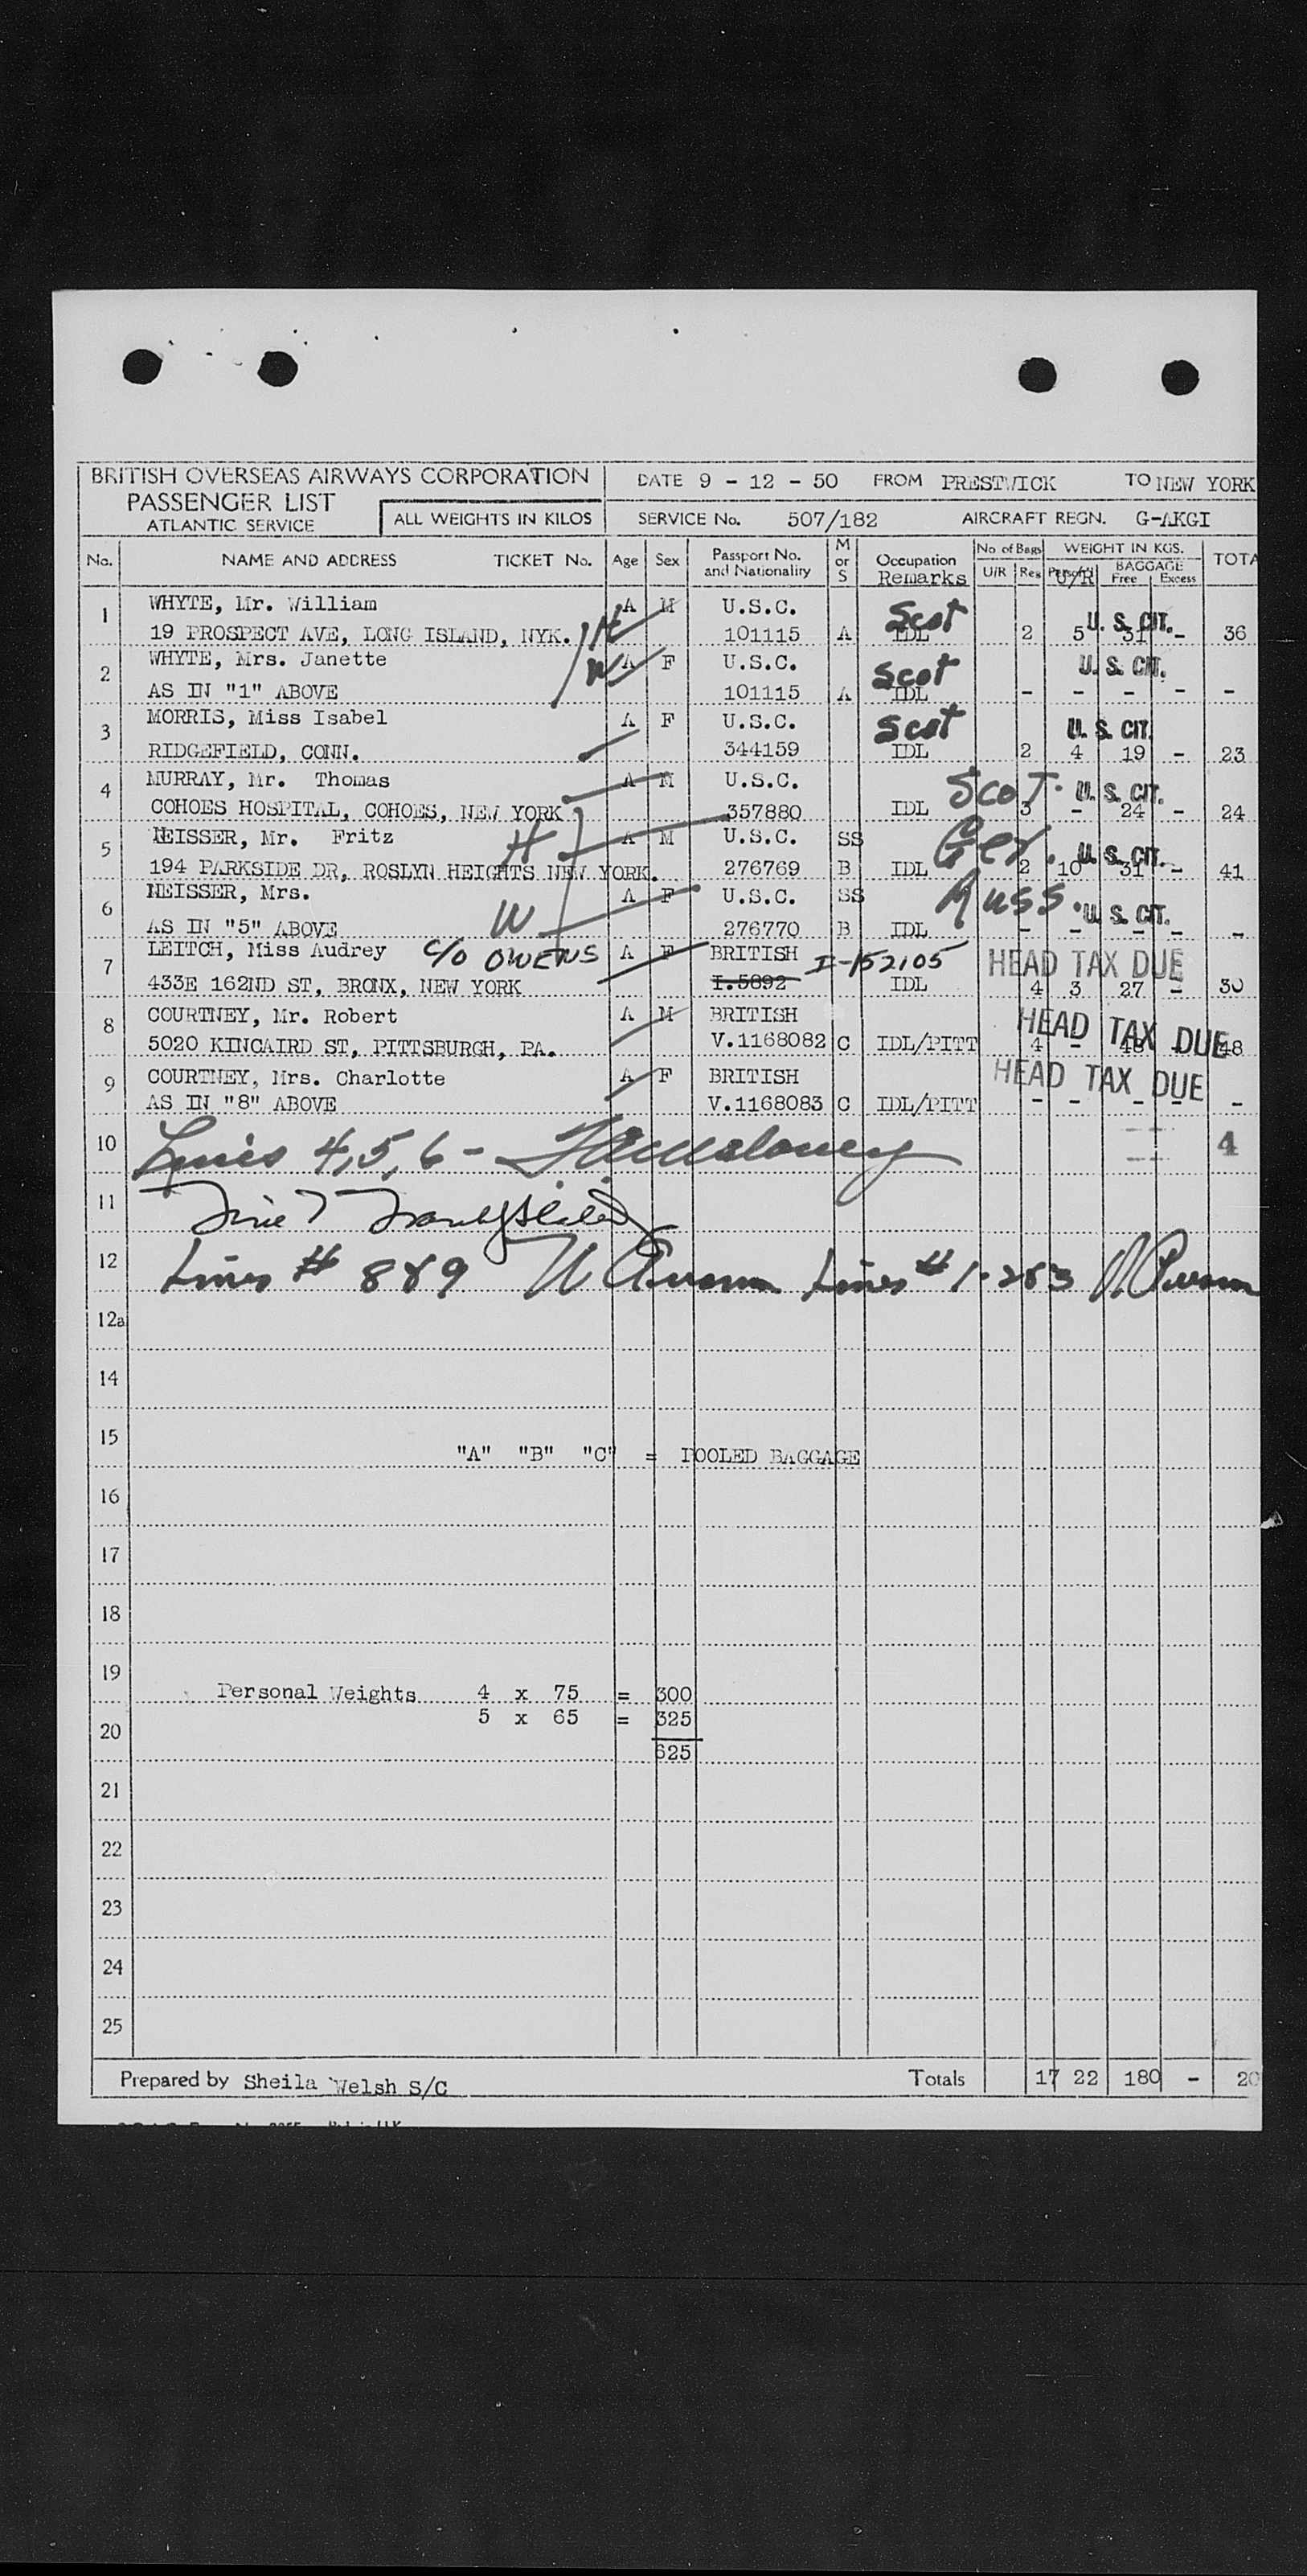 BRITISH OVERSEAS AIRWAYS CORPORATION DATE 9 - 12 - 50 FROM PRESTWICK TO NEW YORK
PASSENGER LIST
ATLANTIC SERVICE ALL WEIGHTS IN KILOS SERVICE No. 507/182 AIRCRAFT REGN. G-AKGI
No. NAME AND ADDRESS TICKET No. Age Sex Passport No. and Nationality M or S Occupation Remarks No of Bags U/R Reg WEIGHT IN KGS. U/R BAGGAGE Free Excess TOTA
1 WHYTE, Mr. William A M U.S.C. Scot U. S. CIT.
19 PROSPECT AVE, LONG ISLAND, NYK. H 101115 A IDL 2 5 31 - 36
2 WHYTE, Mrs. Janette W A F U.S.C. Scot U. S. CIT.
AS IN "1" ABOVE 101115 A IDL - - - - -
3 MORRIS, Miss Isabel A F U.S.C. Scot U. S. CIT.
RIDGEFIELD, CONN. 344159 IDL 2 4 19 - 23
4 MURRAY, Mr. Thomas A M U.S.C. Scot. U. S. CIT.
COHOES HOSPITAL, COHOES, NEW YORK 357880 IDL 3 - 24 - 24
5 NEISSER, Mr. Fritz H A M U.S.C. SS Ger. U. S. CIT.
194 PARKSIDE DR, ROSLYN HEIGHTS NEW YORK. 276769 B IDL 2 10 31 - 41
6 NEISSER, Mrs. W A F U.S.C. SS Russ. U. S. CIT.
AS IN "5" ABOVE 276770 B IDL - - - - -
7 LEITCH, Miss Audrey C/O OWENS A F BRITISH I-152105 HEAD TAX DUE
433E 162ND ST, BRONX, NEW YORK I.5892 IDL 4 3 27 - 30
8 COURTNEY, Mr. Robert A M BRITISH HEAD TAX DUE
5020 KINCAIRD ST, PITTSBURGH, PA. V.1168082 C IDL/PITT 4 - 48 - 48
9 COURTNEY, Mrs. Charlotte A F BRITISH HEAD TAX DUE
AS IN "8" ABOVE V.1168083 C IDL/PITT - - - - -
10 Lines 4, 5, 6 - 4
11 Line 7
12 Lines # 8 & 9 Lines # 1-2&3
12a
14
15 "A" "B" "C" = POOLED BAGGAGE
16
17
18
19 Personal Weights 4 x 75 = 300
20 5 x 65 = 325
625
21
22
23
24
25
Prepared by Sheila Welsh S/C Totals 17 22 180 - 20